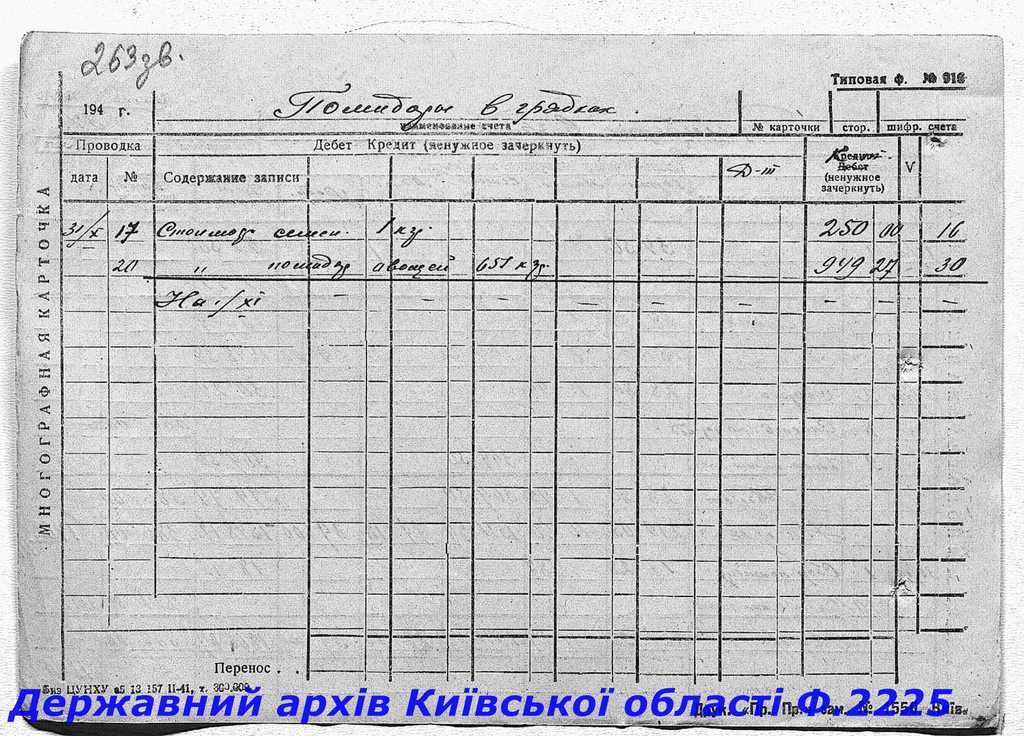 263 зв.
Типовая ф. № 916
194 г. Помидоры в грядках.
наименование счета № карточки стор. шифр. счета
Проводка Дебет Кредит (ненужное зачеркнуть) Кредит Дебет (ненужное зачеркнуть) V
дата № Содержание записи Д-III
31/X 17 1 кг. 250 00 16
20 " помидор овощей 651 кг. 949 27 30
На 1/XI — — — — — — — —
МНОГОГРАФНАЯ КАРТОЧКА
Перенос . .
ЦУНХУ 13 157 II-41, т. 300.000
Державний архів Київської області Ф.2225
Друк. «Пр. Пр.» зам. № 1550 Київ.